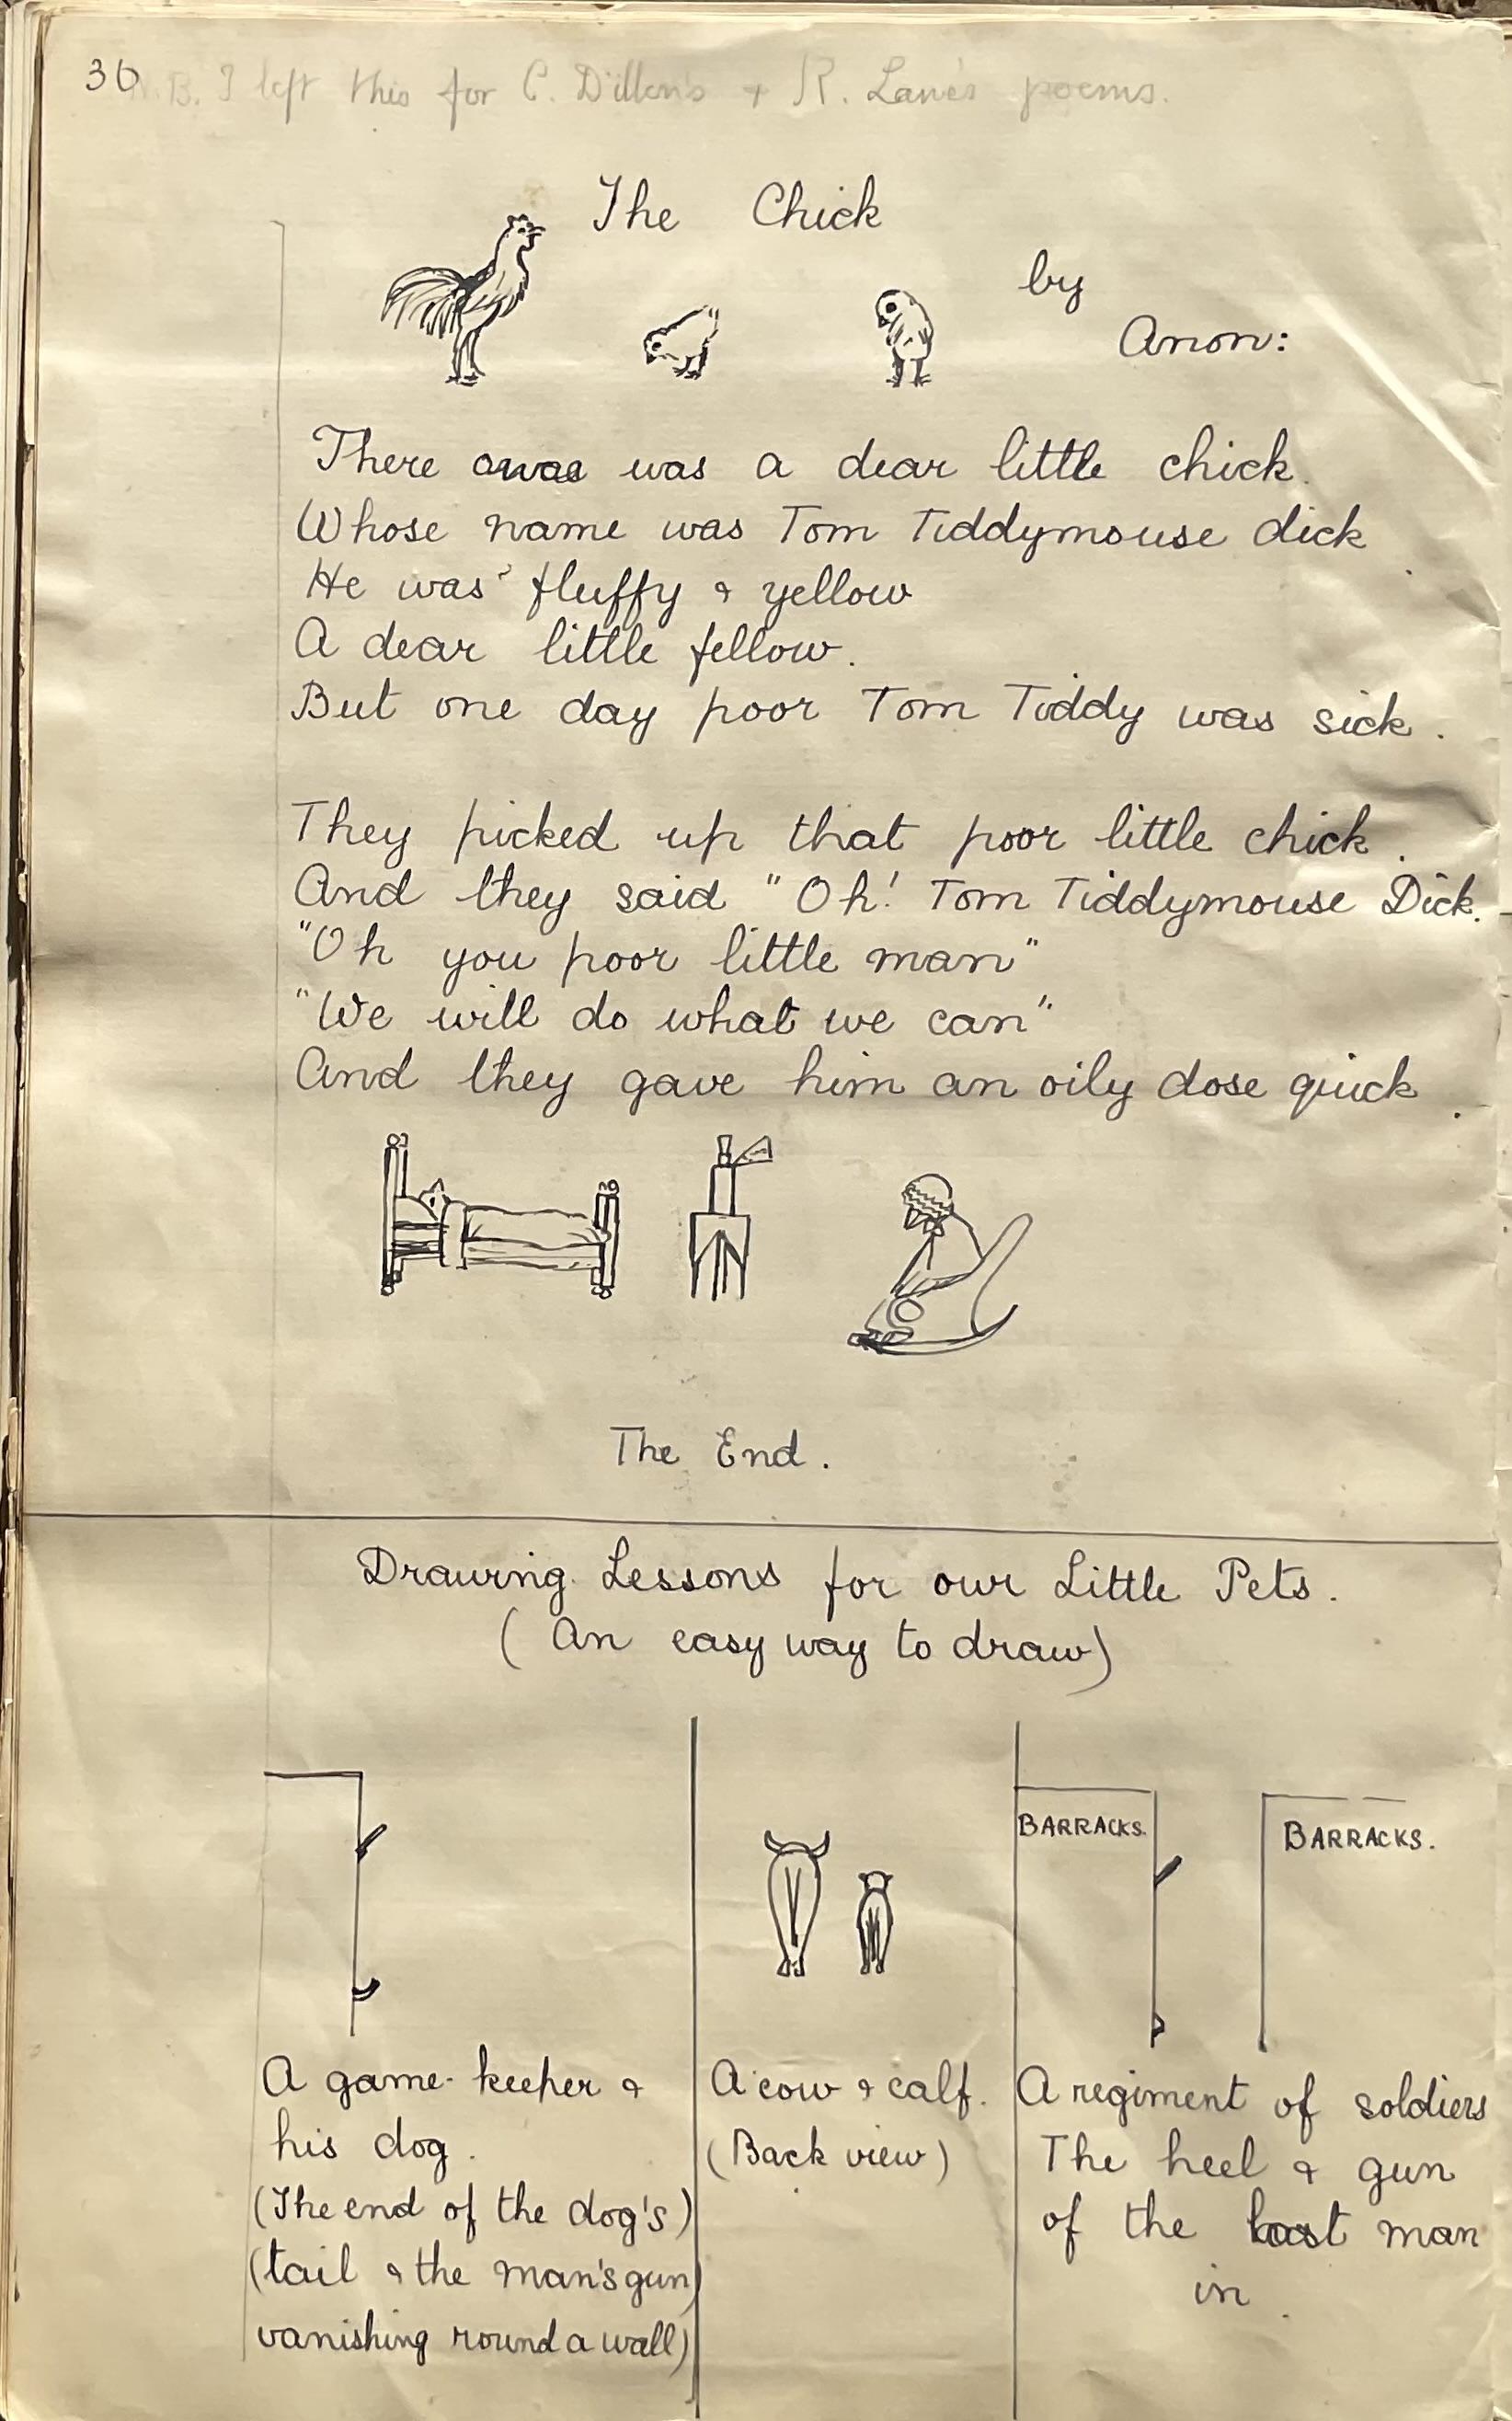 36
N.B. I left this for C. Dillon's + R. Lane's poems.
The Chick
by
Anon:
There was was a dear little chick.
Whose name was Tom Tiddymouse dick
He was fluffy & yellow
A dear little fellow.
But one day poor Tom Tiddy was sick.
They picked up that poor little chick.
And they said "Oh! Tom Tiddymouse Dick.
"Oh you poor little man"
"We will do what we can"
And they gave him an oily dose quick.
The End.
Drawing Lessons for our Little Pets.
(An easy way to draw)
BARRACKS.
BARRACKS.
A game-keeper &
his dog.
(The end of the dog's)
(tail & the man's gun)
vanishing round a wall)
A cow & calf.
(Back view)
A regiment of soldiers
The heel & gun
of the last man
in.